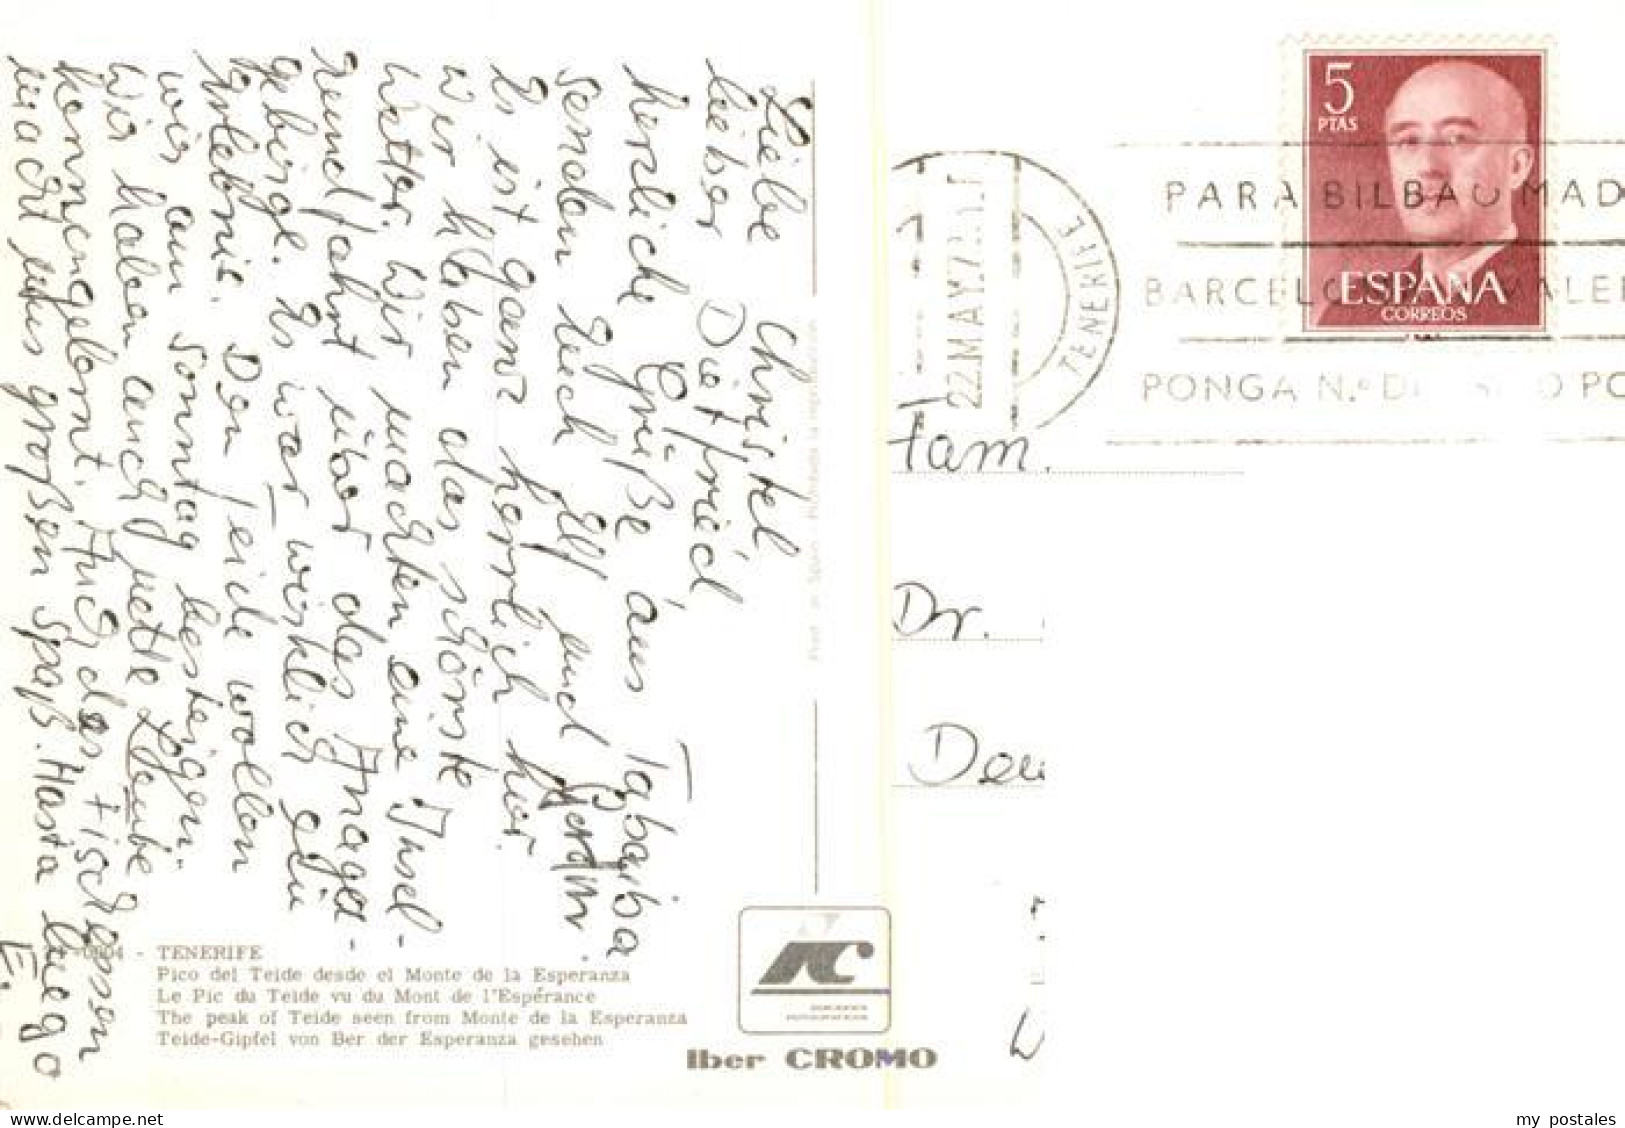 Liebe Christel
lieber Dietfried,
herzliche Grüße aus Tabaiba
senden Euch Elf und
Es ist ganz herrlich hier.
Wir haben das schönste
Wetter. Wir machten eine Insel-
rundfahrt über das Anaga-
gebirge. Es war wirklich ein
Erlebnis. Den Teide wollen
wir am Sonntag besteigen.
Wir haben auch nette Leute
kennengelernt. Auch das Fischessen
macht uns großen Spaß. Hasta luego
E.
5
PTAS
ESPAÑA
CORREOS
22.MAY.7
TENERIFE
PARA BILBAO MAD
BARCELO VALE
PONGA N.º DI PO
Fam.
Dr.
0804 - TENERIFE
Pico del Teide desde el Monte de la Esperanza
Le Pic du Teide vu du Mont de l'Espérance
The peak of Teide seen from Monte de la Esperanza
Teide-Gipfel von Ber der Esperanza gesehen
IC
Iber CROMO
my postales